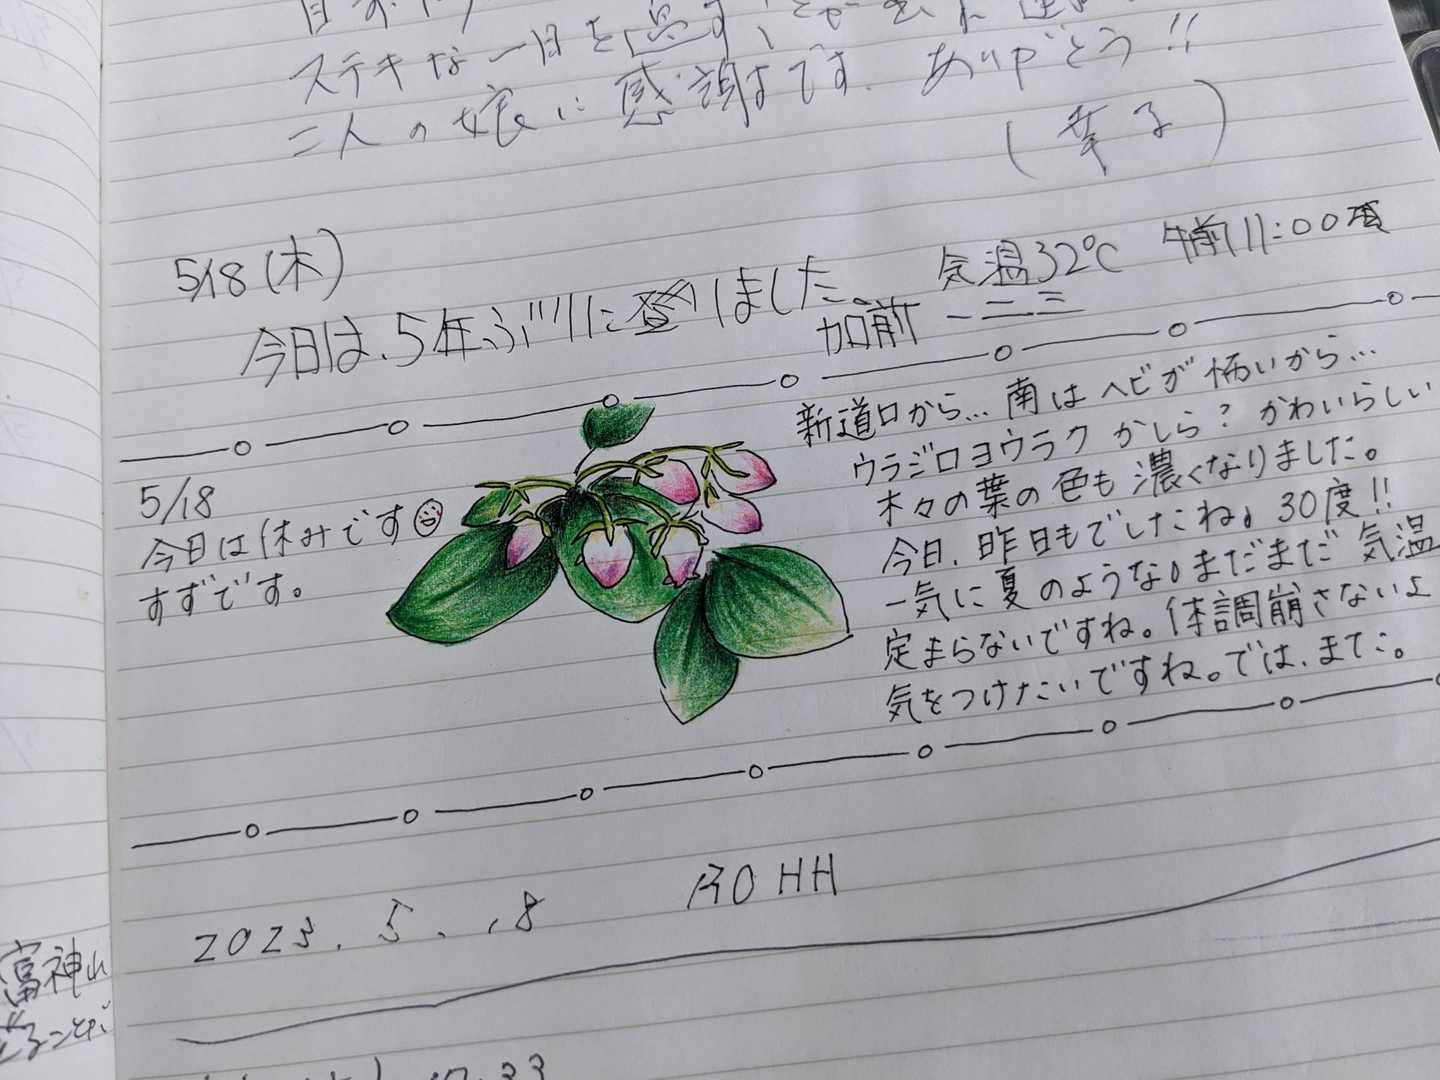 ステキな一日を過す、
二人の娘に感謝です。ありがとう!!
(幸子)
5/18(木)
気温32℃ 午前11:00頃
今日は、5年ぶりに登りました。
加前 一二三
5/18
今日は休みです
すずです。
新道口から…南はヘビが怖いから…
ウラジロヨウラクかしら?かわいらしい
木々の葉の色も濃くなりました。
今日、昨日もでしたね。30度!!
一気に夏のような。まだまだ気温
定まらないですね。体調崩さないよ
気をつけたいですね。では、また。
2023.5.18
富神山